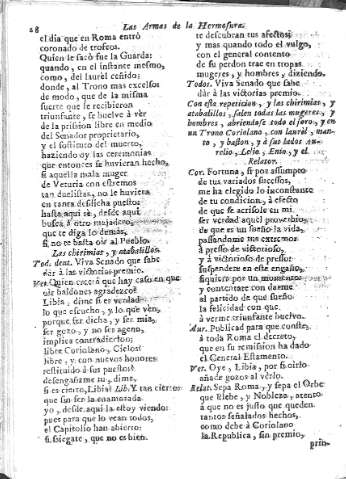 28 Las Armas de la Hermosura.
el dia que en Roma entrò
coronado de trofeos.
Quien le sacò fue la Guarda:
quando, en el instante mesmo,
como, del laurel ceñido;
donde, al Trono mas excelso;
de modo, que de la misma
suerte que le recibieron
triunfante, se huelve à ver
de la prision libre en medio
del Senador proprietario,
y el sostituto del muerto,
haziendo oy las ceremonias
que entonces se huvieran hecho,
si aquella mala muger
de Veturia con estremos
tan duelistas, no le huviera
en tanta desdicha puesto:
hasta aqui sè, desde aqui
busca à otro majadero,
que te diga lo demàs,
si no te basta oir al Pueblo.
Las chirimias, y atabalillos.
Tod. dent. Viva Senado que sabe
dar à las victorias premio.
Ver. Quien creerà que hay caso en que
oir baldones agradezco?
Libia, dime si es verdad
lo que escucho, y lo que veo,
porque ser dicha, y ser mia,
ser gozo, y no ser ageno,
implica contradicion:
libre Coriolano, Cielos!
libre, y con nuevos honores
restituìdo à sus puestos!
desengañame tu, dime,
si es cierto, Libia? Lib. Y tan cierto,
que sin ser la enamorada
yo, desde aqui la estoy viendo:
pues para que lo vean todos,
el Capitolio han abierto:
sossiegate, que no es bien
te descubran tus afectos;
y mas quando todo el vulgo,
con el general contento
de su perdon trae en tropas
mugeres, y hombres, diziendo.
Todos. Viva Senado que sabe
dàr à las victorias premio.
Con esta repeticion, y las chirimias, y
atabalillos, salen todas las mugeres, y
hombres, abriendose todo el foro, y en
un Trono Coriolano, con laurèl, man-
to, y baston, y à sus lados Au-
relio, Lelio, Enio, y el
Relator.
Cor. Fortuna, si por assumpto
de tus variados sucessos,
me ha elegido lo inconstante
de tu condicion, à efecto
de que se acrisole en mi
ser verdad aquel proverbio,
de que es un sueño la vida,
passandome tus extremos
à presso de victorioso,
y à victorioso de presso:
suspendete en este engaño,
siquiera por un momento,
y contentate con darme
al partido de que sueño
la felicidad con que
à verme triunfante buelvo.
Aur. Publicad para que conste,
à toda Roma el decreto,
que en su remission ha dado
el General Estamento.
Ver. Oye, Libia, por si oirlo
añade gozos al vèrlo.
Relat. Sepa Roma, y sepa el Orbe
que Plebe, y Nobleza, atento
à que no es justo que queden
tantos señalados hechos,
como debe à Coriolano
la Republica, sin premio,
prin-